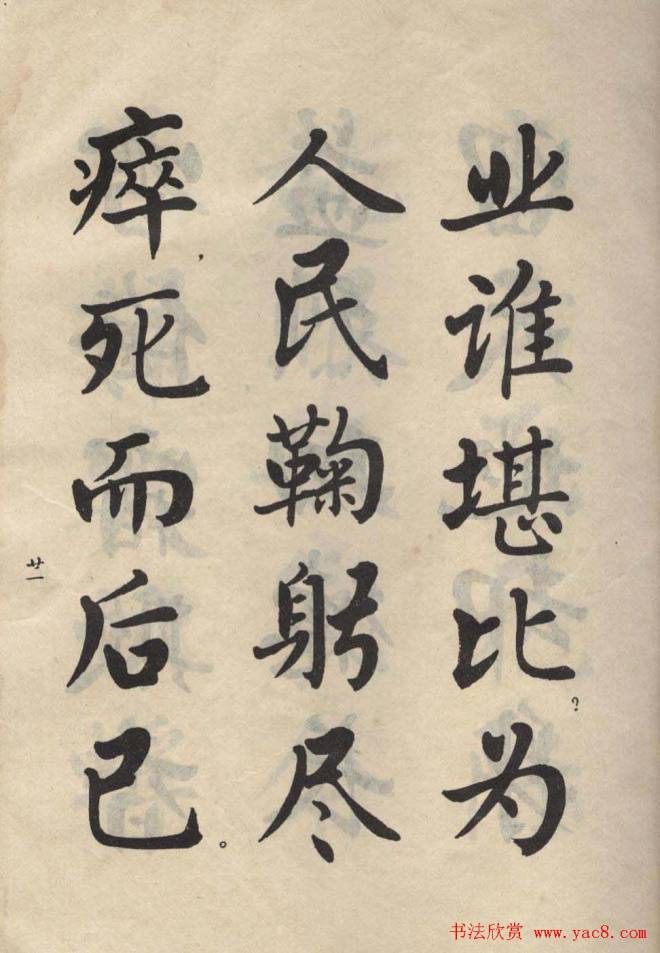 业谁堪比?为
人民鞠躬尽
瘁,死而后已。
廿一
书法欣赏 www.yac8.com